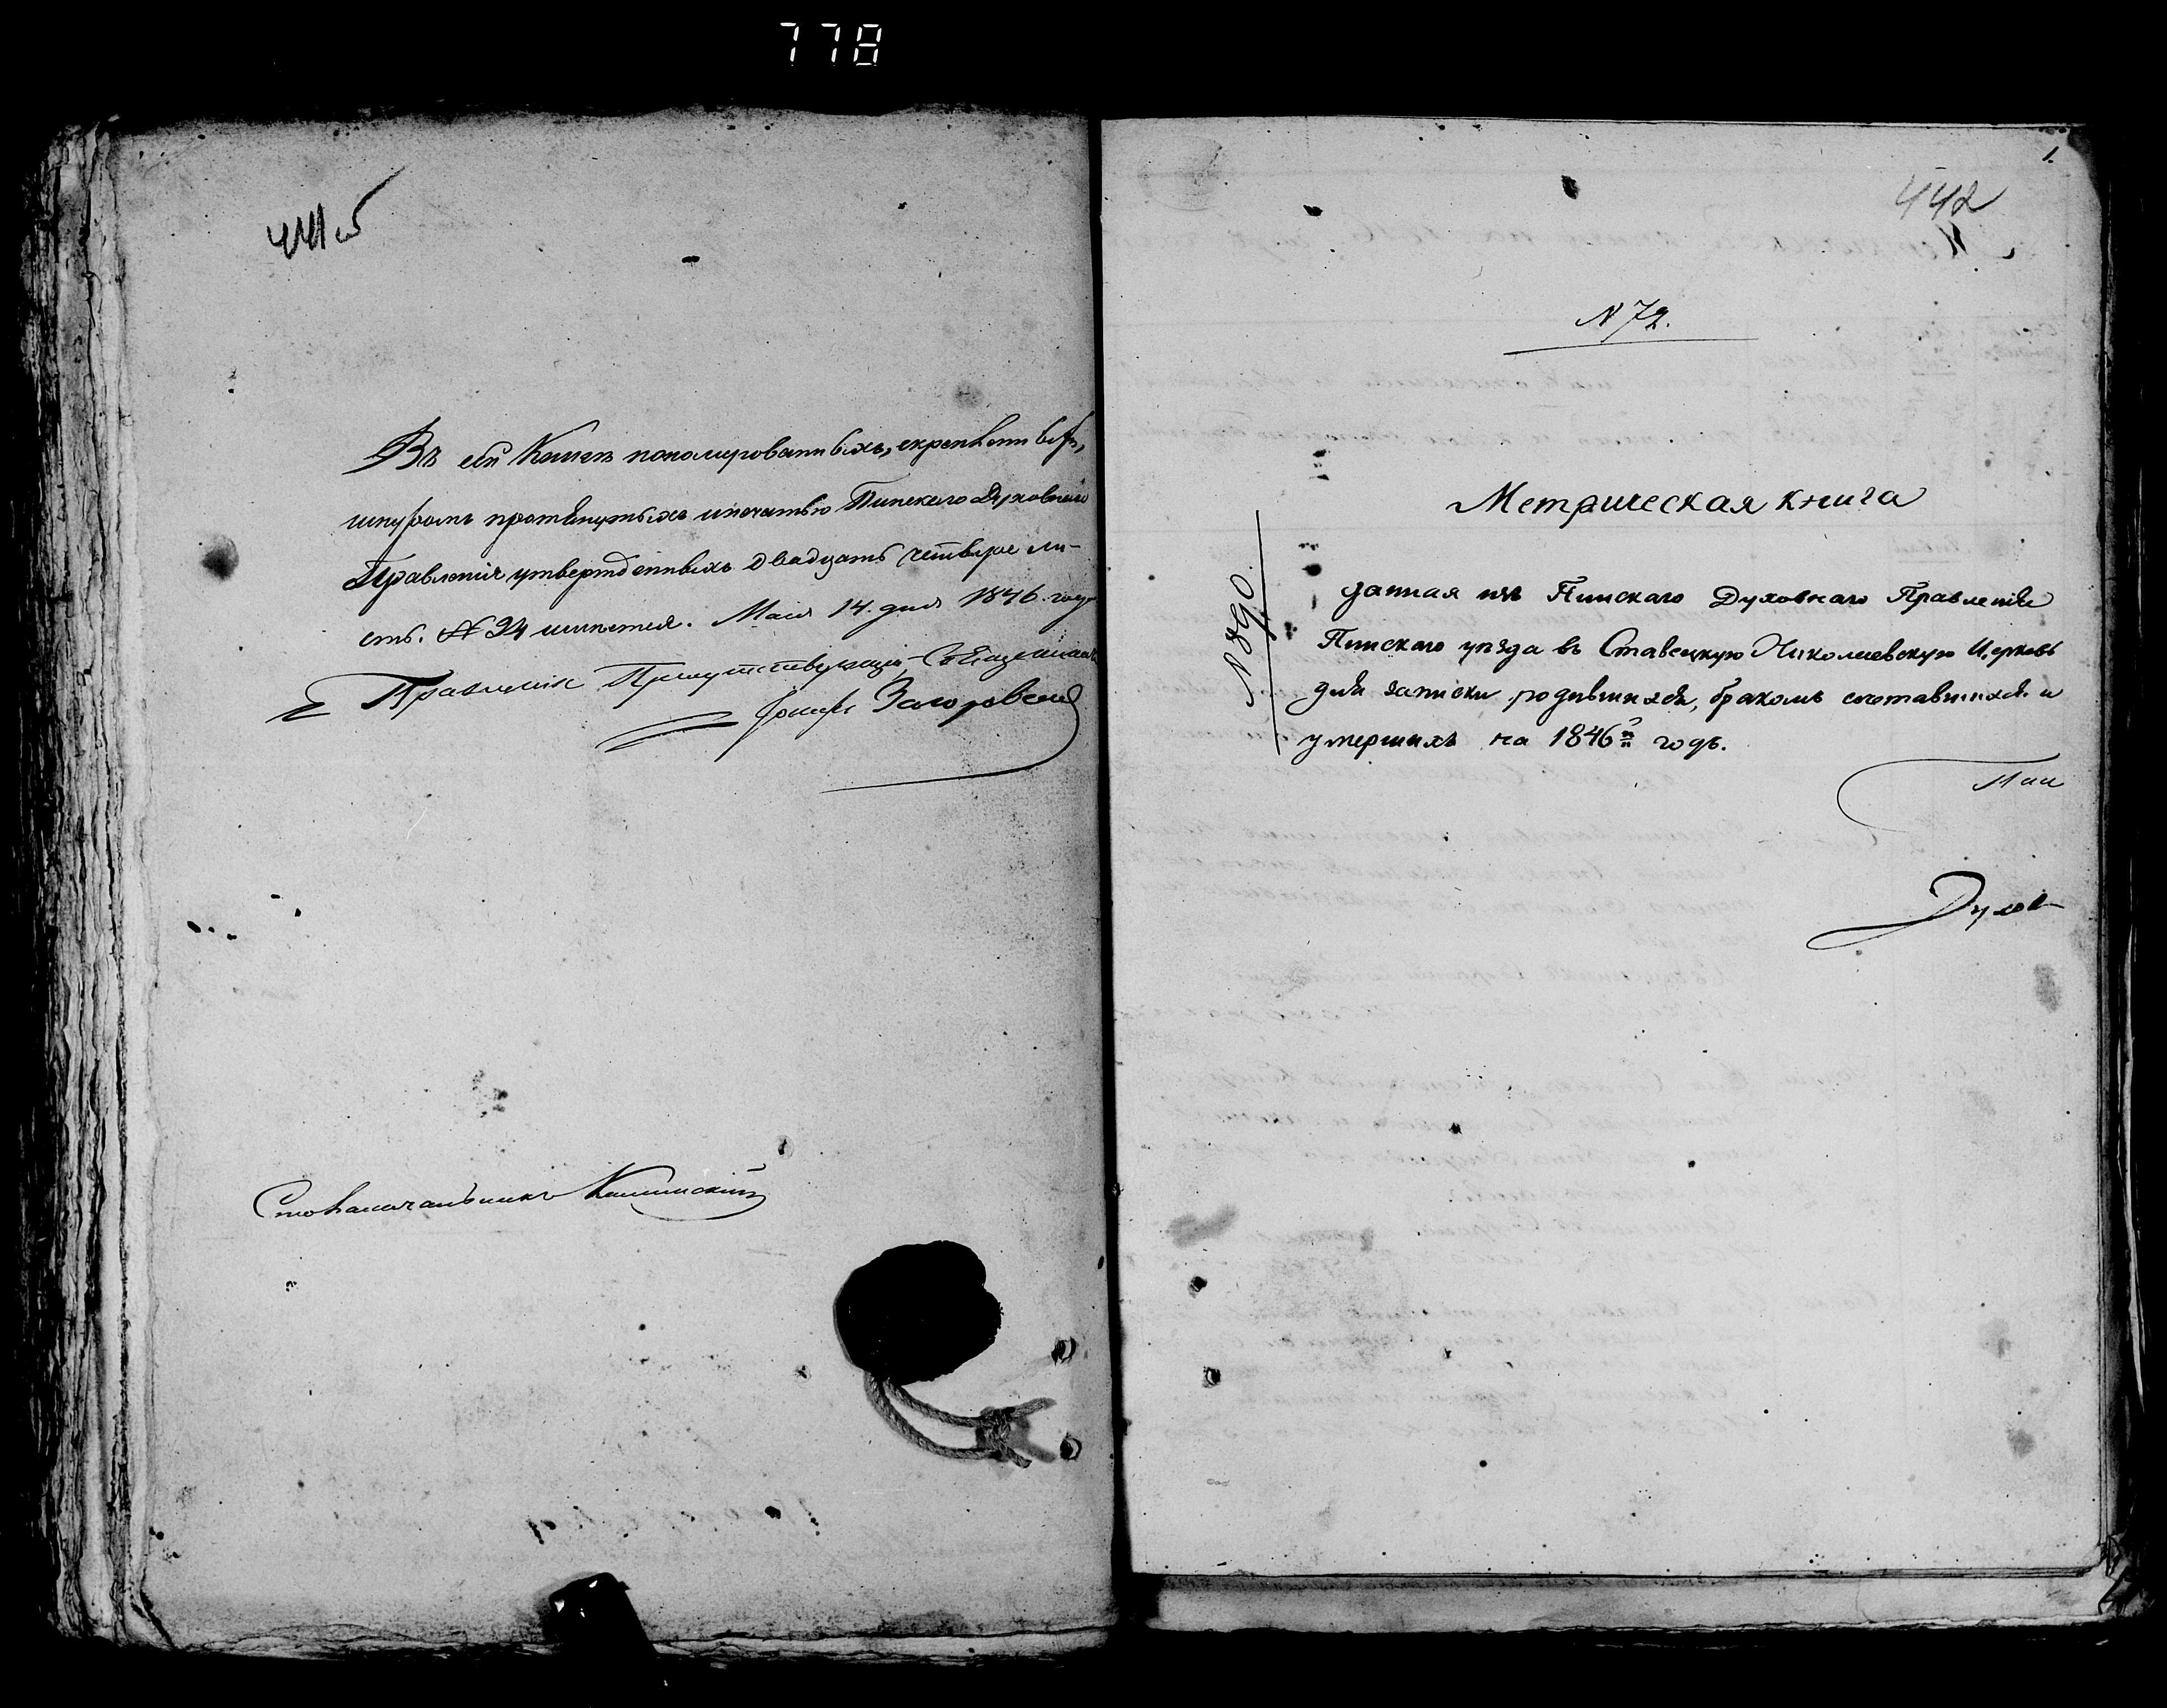 778
441 об
Въ сей Книгѣ пономерованныхъ, скрепленныхъ,
шнуромъ протянутыхъ и печатью Пинскаго Духовнаго
Правленія утвержденныхъ двадцать четыре ли-
стъ. № 24 числится. Мая 14. дня 1846 года
Правленія Присутствующій Священникъ
Загоровскій
Столоначальникъ
1.
442
N 72.
Метрическая книга
N 890.
данная изъ Пинскаго Духовнаго Правленія
Пинскаго уѣзда въ Ставецкую Николаевскую Церковь
для записки родившихся, бракомъ сочетавшихся и
умершихъ на 1846й годъ.
Пин
Духов